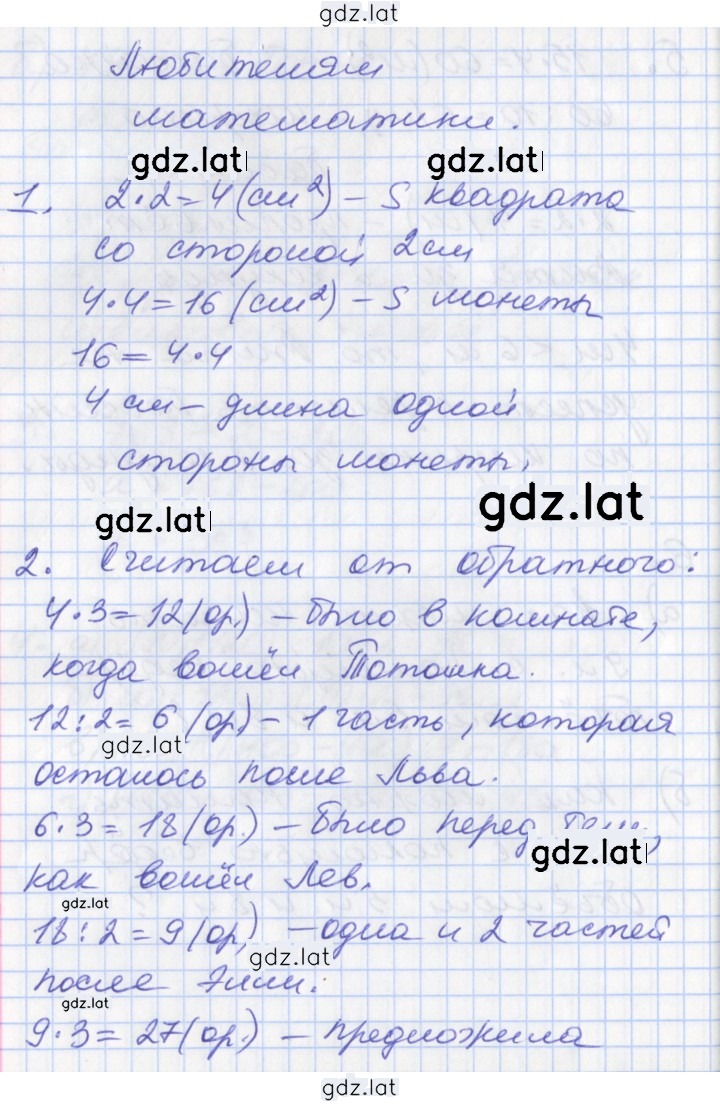 gdz.lat
Любителям
математики.
gdz.lat gdz.lat
1. 2·2=4(см²) – S квадрата
со стороной 2см
4·4=16(см²) – S монеты
16=4·4
4 см – длина одной
стороны монеты.
gdz.lat gdz.lat
2. Считаем от обратного:
4·3=12(ор.) – было в комнате,
когда вошёл Тотошка.
12:2=6(ор) – 1 часть, которая
gdz.lat
осталось после Льва.
6·3=18(ор.) – было перед тем,
gdz.lat
как вошёл Лев.
gdz.lat
18:2=9(ор) – одна и 2 частей
gdz.lat
после Элли.
gdz.lat
9·3=27(ор.) – предложила
gdz.lat